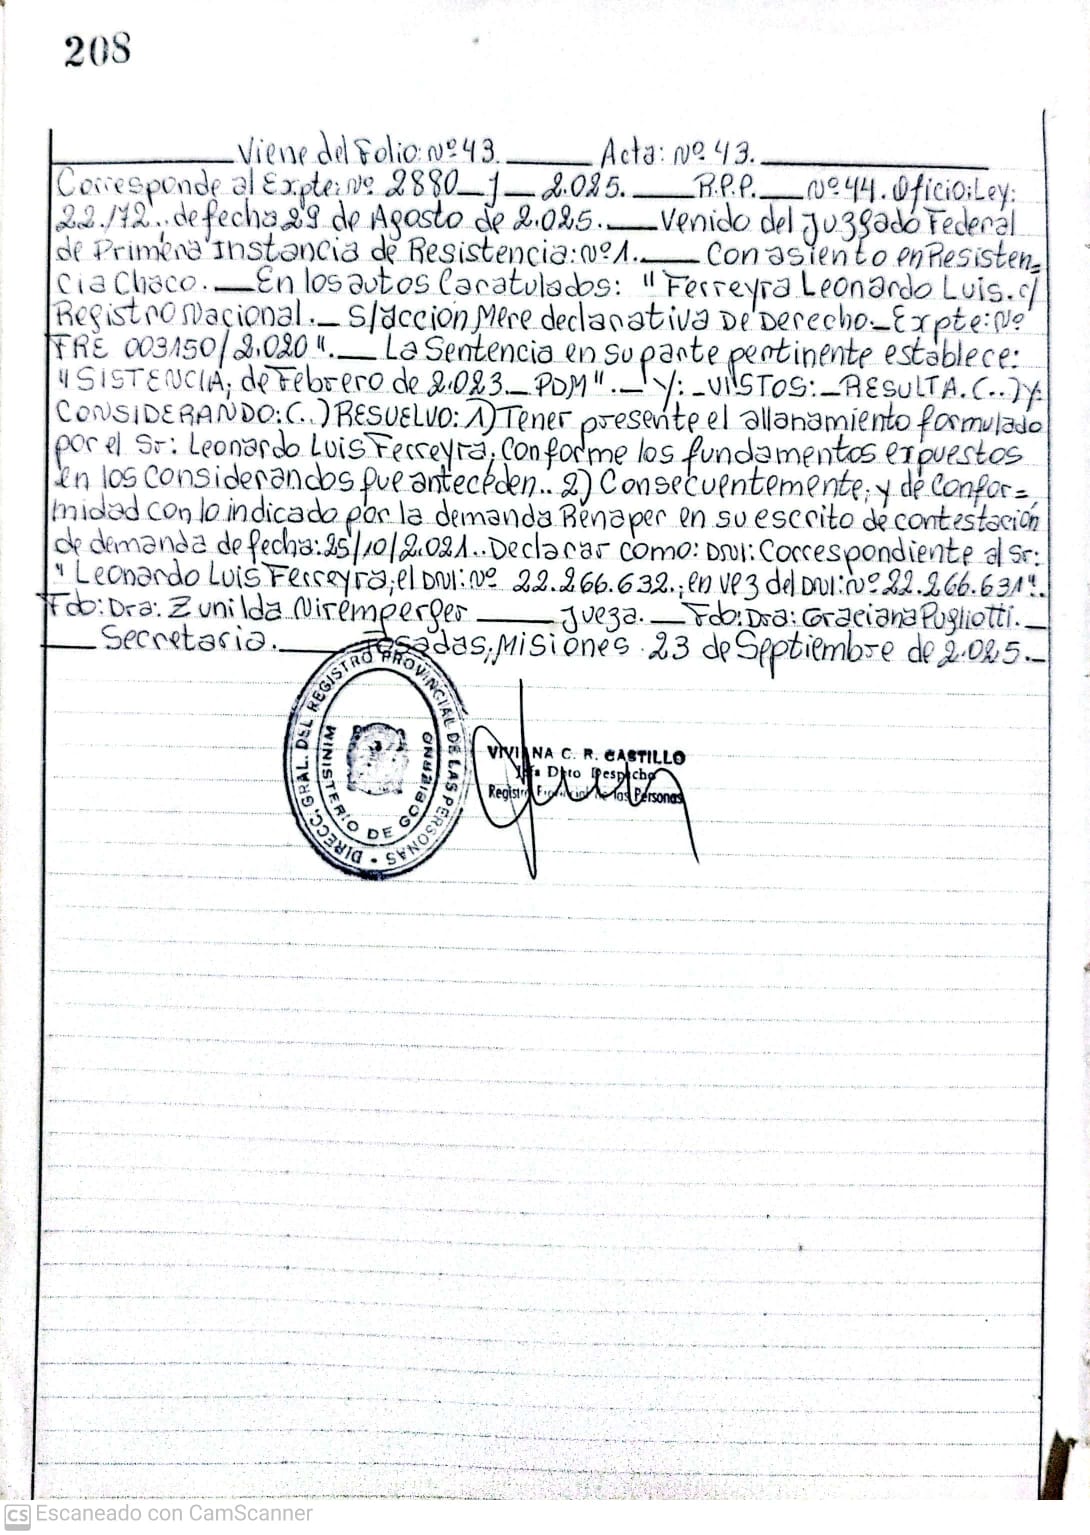 208
Viene del Folio: Nº 43. ____ Acta: Nº 43. ____
Corresponde al Expte: Nº 2880_J_ 2.025. ___ R.P.P. __ Nº 44. Oficio; Ley:
22./72.. de fecha 29 de Agosto de 2.025. ___ Venido del Juzgado Federal
de Primera Instancia de Resistencia: Nº 1. ___ Con asiento en Resisten=
cia Chaco. ___ En los autos Caratulados: "Ferreyra Leonardo Luis. c/
Registro Nacional. _ S/accion Mere declarativa De Derecho._ Expte: Nº
FRE 003150/2.020". __ La Sentencia en su parte pertinente establece:
"SISTENCIA; de Febrero de 2.023_ PDM". _ Y: _ VISTOS: _ RESULTA. (..) Y
CONSIDERANDO: (..) RESUELVO: 1) Tener presente el allanamiento formulado
por el Sr: Leonardo Luis Ferreyra; Conforme los fundamentos expuestos
en los considerandos que anteceden.. 2) Consecuentemente; y de Confor=
midad con lo indicado por la demanda Renaper en su escrito de contestación
de demanda de fecha: 25/10/2.021.. Declarar como: DNI: Correspondiente al Sr:
"Leonardo Luis Ferreyra; el DNI: Nº 22.266.632.; en vez del DNI: Nº 22.266.631".
Fdo: Dra: Zunilda Niremperger ____ Jueza. __ Fdo: Dra: Graciana Pugliotti. _
__ Secretaria. ____ Posadas; Misiones 23 de Septiembre de 2.025. _
DIRECC. GRAL. DEL REGISTRO PROVINCIAL DE LAS PERSONAS
MINISTERIO DE GOBIERNO
VIVIANA C. R. CASTILLO
Jefa Dpto Despacho
Registro Provincial de las Personas
CS Escaneado con CamScanner